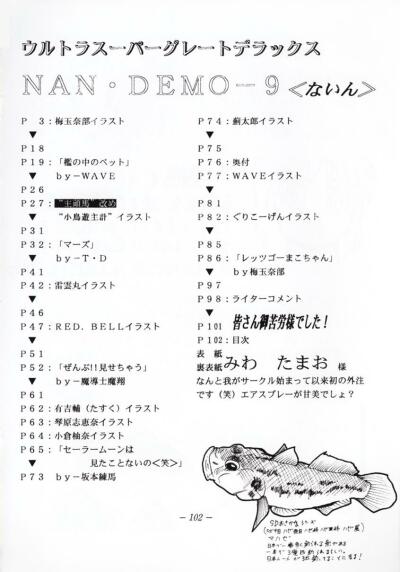 ウルトラスーパーグレートデラックス
NAN・DEMO－9＜ないん＞
P 3：梅玉奈部イラスト
▼
P18
P19：「檻の中のペット」
▼ by－WAVE
P26
P27：“主頭馬”改め
▼ “小鳥遊主計”イラスト
P31
P32：「マーズ」
▼ by－T・D
P41
P42：雷雲丸イラスト
▼
P46
P47：RED．BELLイラスト
▼
P51
P52：「ぜんぶ!!見せちゃう」
▼ by－魔導士魔翔
P61
P62：有吉輔（たすく）イラスト
P63：琴原志恵奈イラスト
P64：小倉柚奈イラスト
P65：「セーラームーンは
▼ 見たことないの＜笑＞」
P73 by－坂本練馬
P74：薊太郎イラスト
▼
P75
P76：奥付
P77：WAVEイラスト
▼
P81
P82：ぐりこーげんイラスト
▼
P85
P86：「レッツゴーまこちゃん」
▼ by梅玉奈部
P97
P98：ライターコメント
▼
P101 皆さん御苦労様でした！
P102：目次
表 紙
裏表紙 みわ たまお 様
なんと我がサークル始まって以来初の外注
です（笑）エアスプレーが甘美でしょ？
－102－